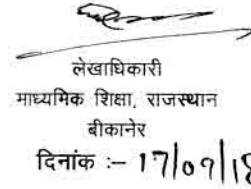 लेखाधिकारी
माध्यमिक शिक्षा, राजस्थान
बीकानेर
दिनांक :– 17/09/18